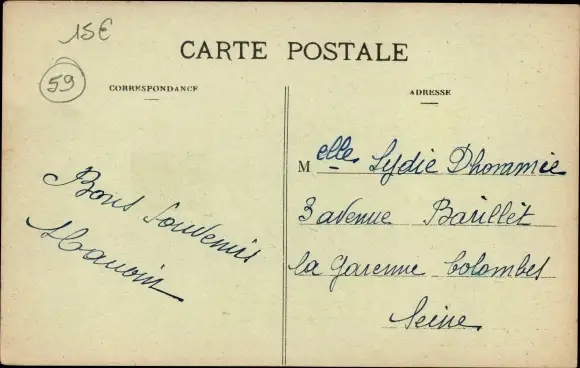 15€
59
CARTE POSTALE
CORRESPONDANCE
ADRESSE
Bons Souvenirs
Melle Lydie Dhommée
3 avenue Barillet
la Garenne Colombes
Seine